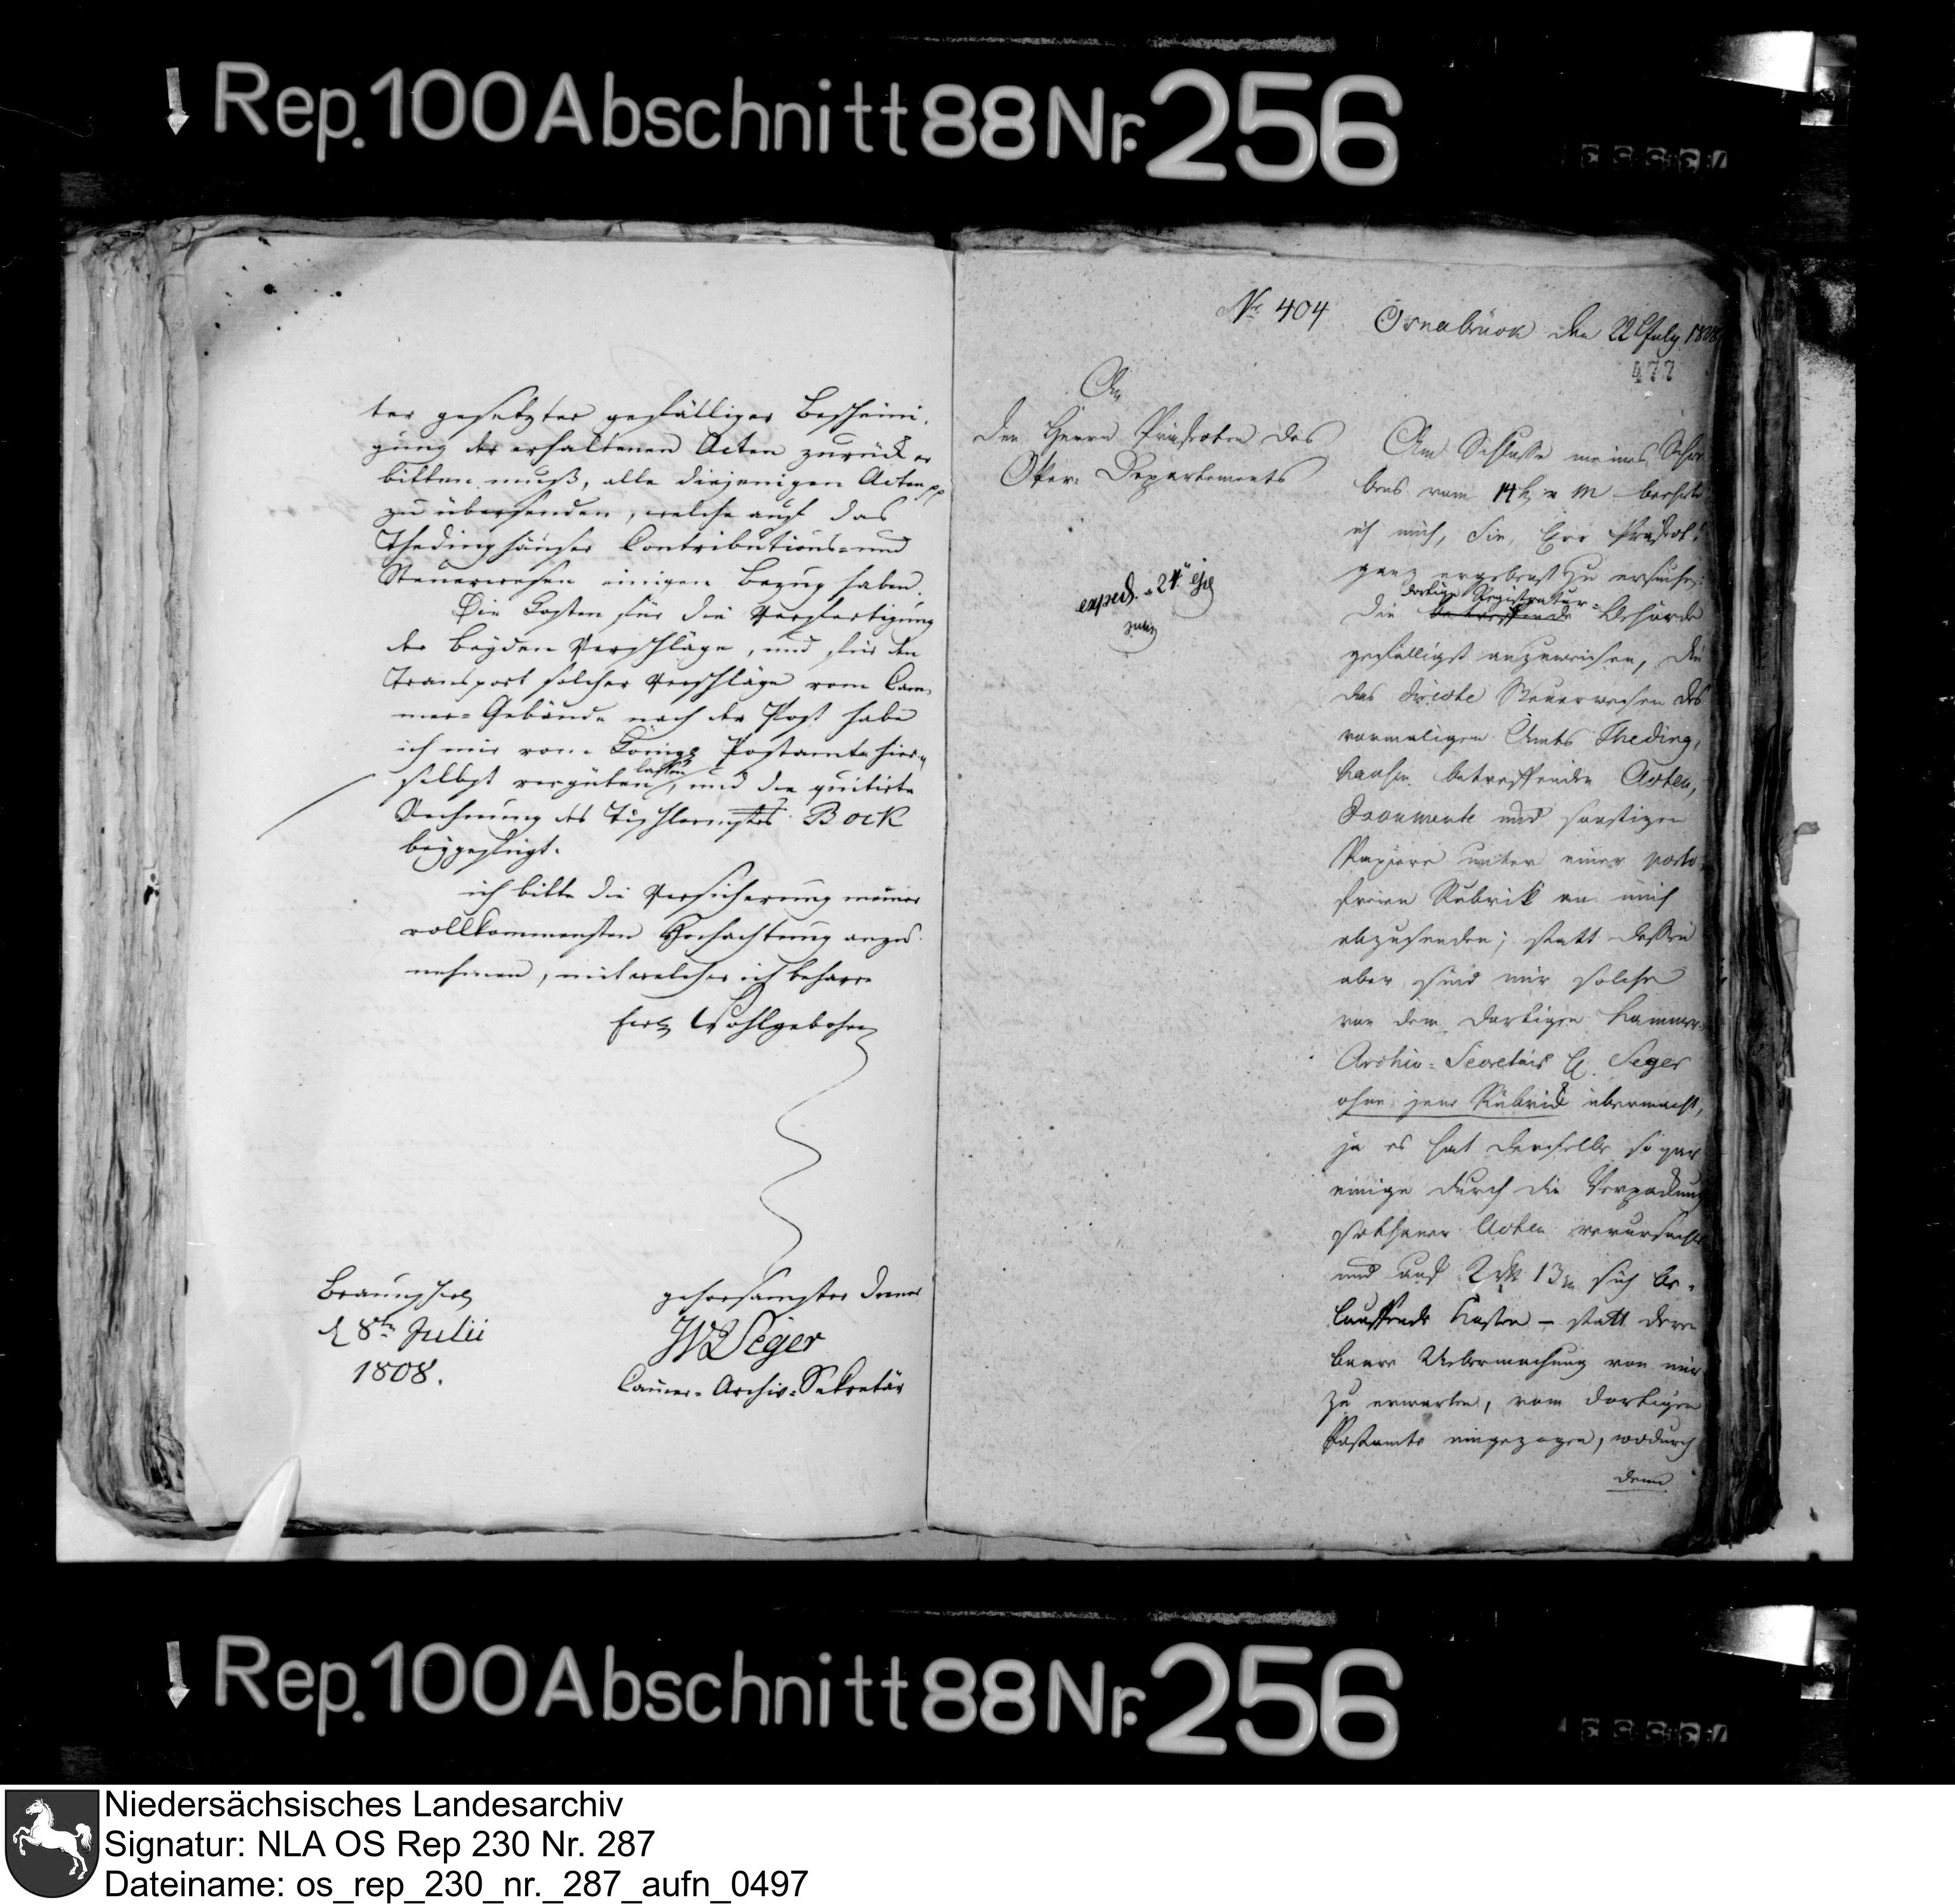 Rep. 100 Abschnitt 88 Nr. 256
ter gesetzter gefälliger Bescheini-
gung der erhaltenen Acten zurück er
bitten muß, alle diejenigen Acten pp
zu übersenden, welche auf das
Thedinghäuser Contributions- und
Steuerwesen einigen Bezug haben.
Die Kosten für die Verfertigung
der beyden Verschläge, und für den
Transport solcher Verschläge vom Cam-
mer-Gebäude nach der Post habe
ich mir vom Königl Postamte hier-
selbst vergüten lassen, und die quitirte
Rechnung des Tischlermstrs Bock
beygefügt.
ich bitte die Versicherung meiner
vollkommensten Hochachtung anzu-
nehmen, mit welcher ich beharre
Ew. Wohlgebohren
Braunschw.
d 8ten Julii
1808.
gehorsamster Diener
Seger
Cammer-Archiv-Sekretär
Nr. 404
Osnabrück den 22 July 1808
477
An
den Herrn Präfecten des
Oker-Departements
exped. 24
Am Schlusse meines Schrei-
bens vom 14 v M beehrte
ich mich, Sie, Herr Präfect!
ganz ergebenst zu ersuchen:
die betreffende dortige Registratur-Behörde
gefälligst anzuweisen, die
das directe Steuerwesen des
vormaligen Amts Theding-
hausen betreffenden Acten,
Documente und sonstigen
Papiere unter einer porto
freien Rubrik an mich
abzusenden; statt dessen
aber sind mir solche
von dem dortigen Kammer-
Archiv-Secretair H. Seger
ohne jene Rubrick übermacht,
ja es hat derselbe sogar
einige durch die Verpackung
sothaner Acten verursachte
und auf 2 13 sich be-
lauffende Kosten – statt deren
baare Uebermachung von mir
zu erwarten, vom dortigen
Postamte eingezogen, wodurch
denn
Rep. 100 Abschnitt 88 Nr. 256
Niedersächsisches Landesarchiv
Signatur: NLA OS Rep 230 Nr. 287
Dateiname: os_rep_230_nr._287_aufn_0497